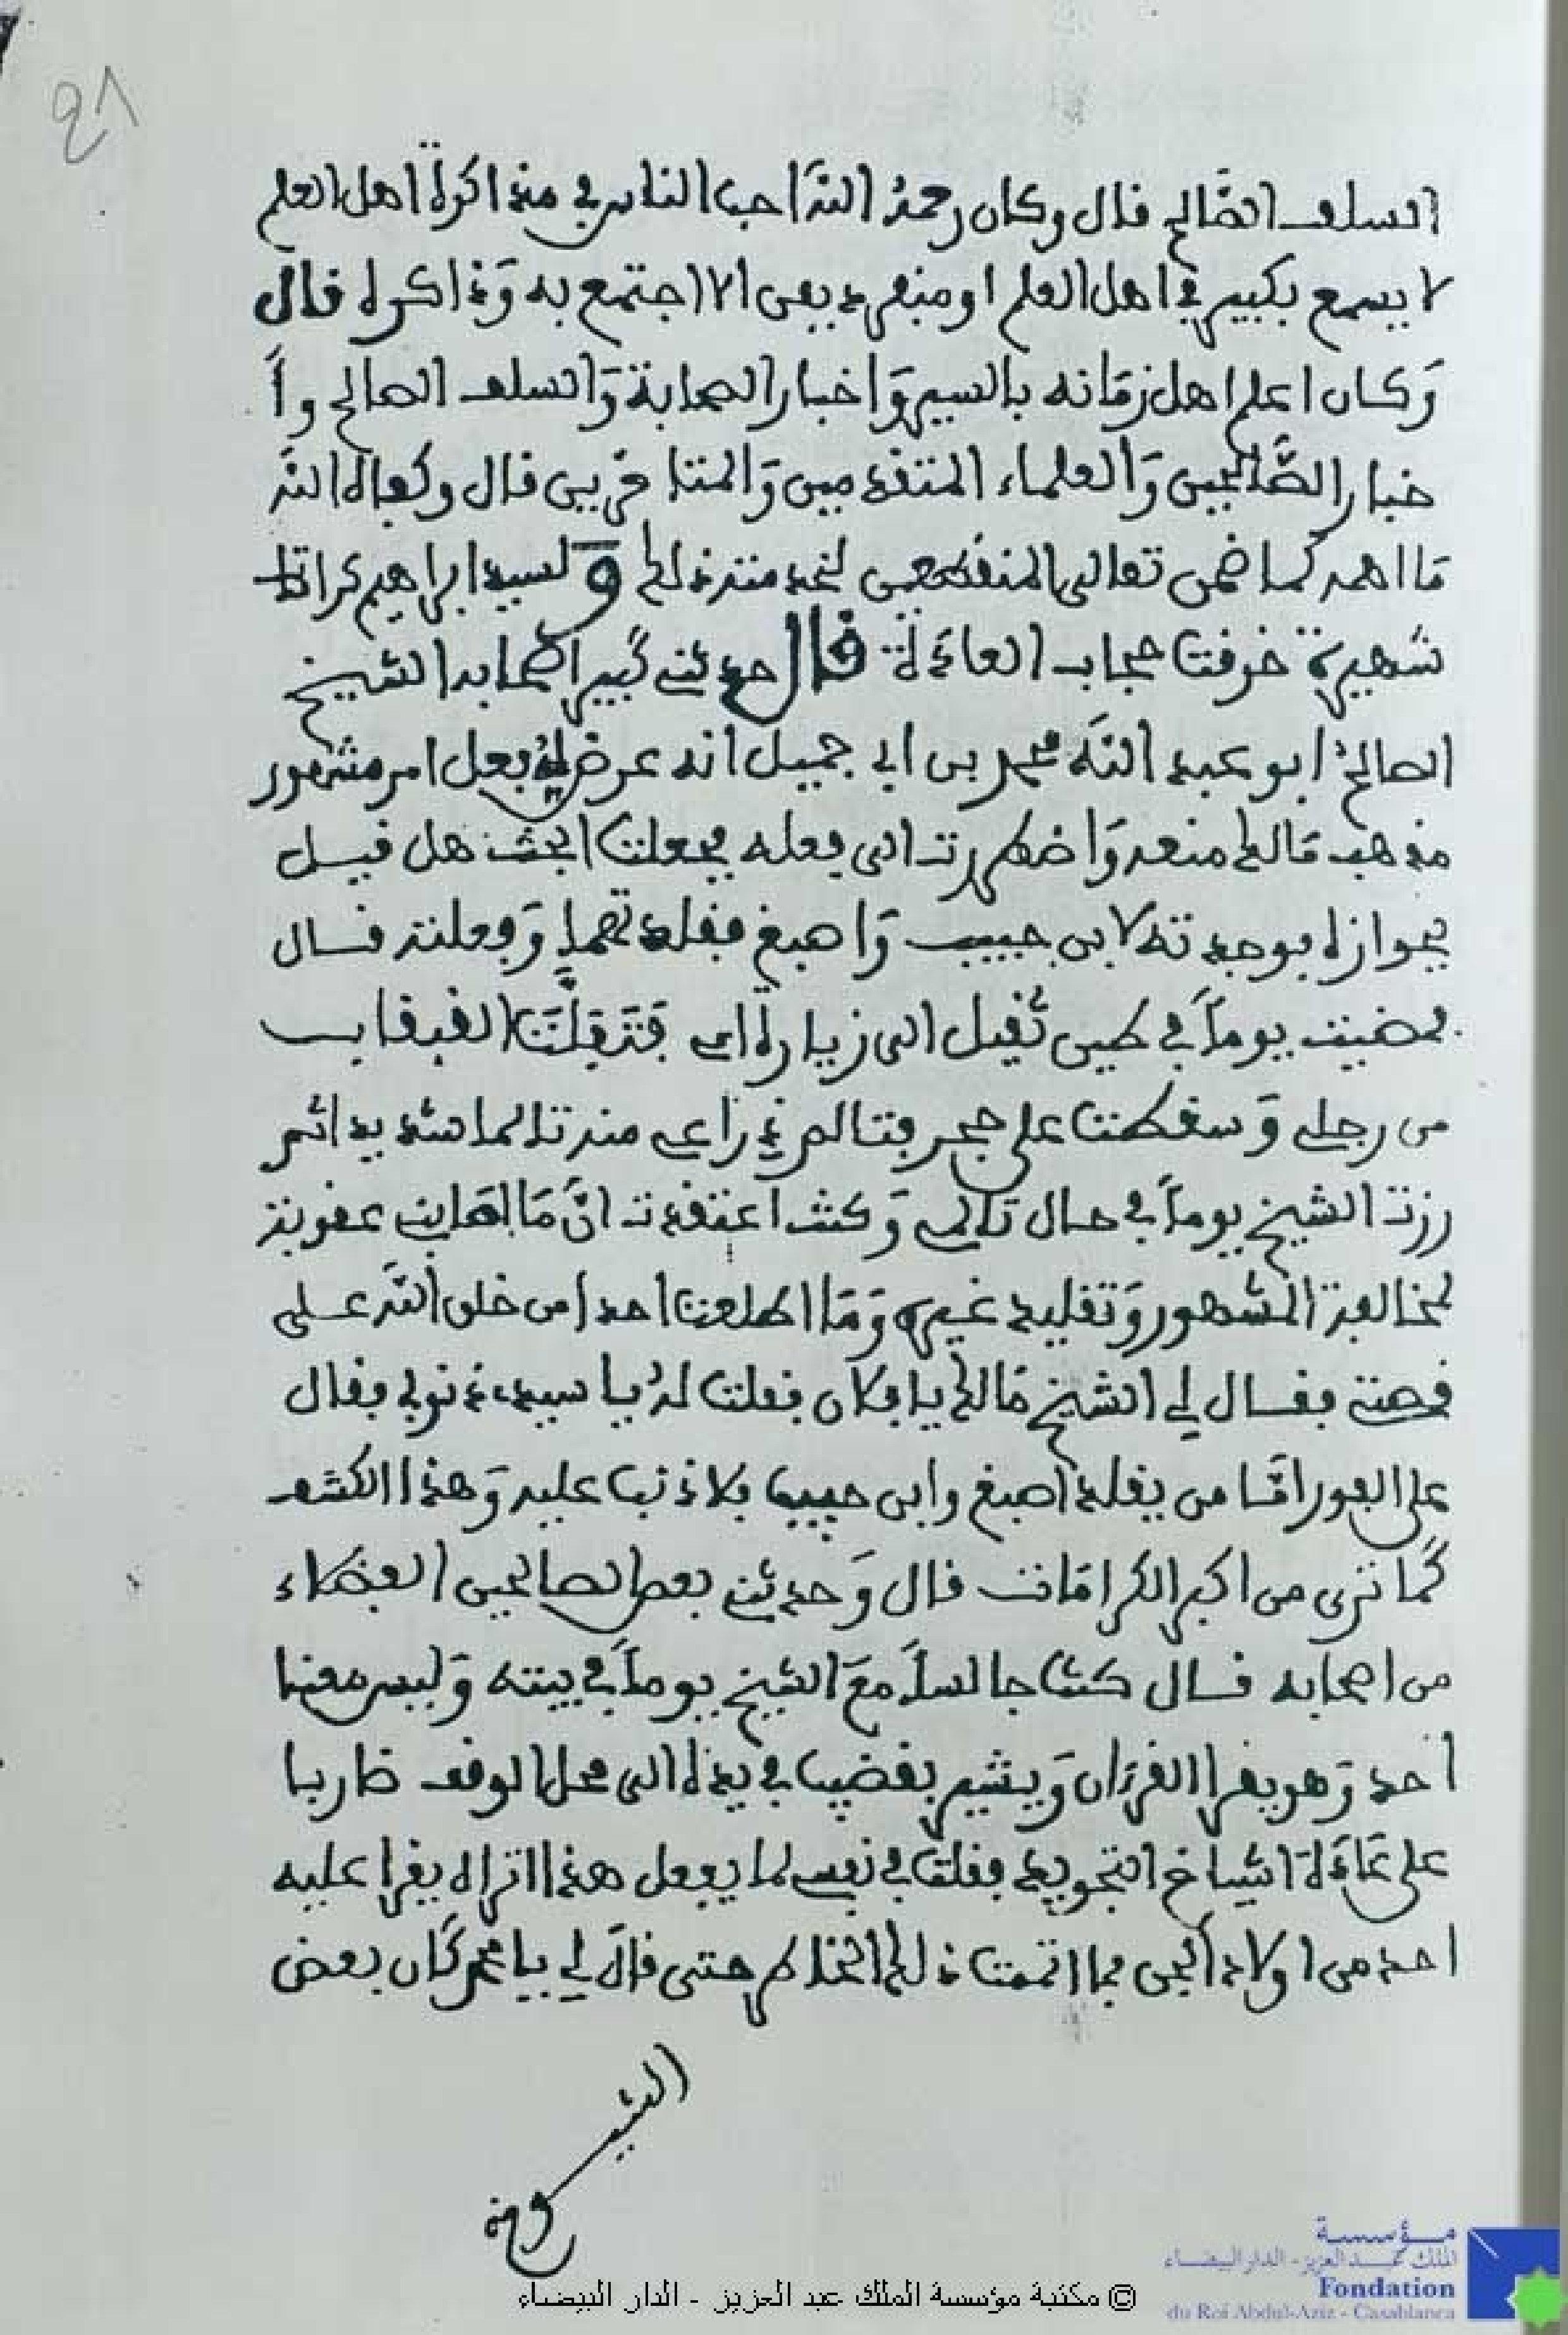 21
السلف الصالح قال وكان رحمه الله احب الناس في مذاكرة اهل العلم
لا يسمع بكبير في اهل العلم او منفرد بفن الا اجتمع به وذاكره قال
وكان اعلم اهل زمانه بالسير واخبار الصحابة والسلف الصالح وا
خبار الصالحين والعلماء المتقدمين والمتاخرين قال وكفاه الله
ما اهمه كما ضمن تعالى للمنقطعين لخدمته ذلك ولسيد ابراهيم كرامات
شهيرة خرقت حجاب العادة قال حدثني كبير اصحابه الشيخ
الصالح ابو عبد الله محمد بن ابي جميل انه عرض لي فعل امر مشهور
مذهب مالك منعه واضطررت الى فعله فجعلت ابحث هل قيل
بجوازه فوجدته لابن حبيب واصبغ فقلدتهما وفعلته قال
فمضيت يوما في طين ثقيل الى زيارة امي فتزفلت القبقاب
من رجلي وسقطت على حجر فتالم ذراعي منه تالما شديدا ثم
زرت الشيخ يوما في حال تالمي وكنت اعتقدت ان ما اصابني عقوبة
لمخالفة المشهور وتقليد غيره وما اطلعت احدا من خلق الله على
قصتي فقال لي الشيخ مالك يا فلان فقلت له يا سيد ذنوبي فقال
على الفور اما من يقلد اصبغ وابن حبيب فلا ذنب عليه وهذا الكشف
كما ترى من اكبر الكرامات قال وحدثني بعض الصالحين الفضلاء
من اصحابه قال كنت جالسا مع الشيخ يوما في بيته وليس معنا
احد وهو يقرا القرءان ويشير بقضيب في يده الى محل الوقف ضاربا
على عادة اشياخ التجويد فقلت في نفسي لما يفعل هذا اتراه يقرا عليه
احد من اولاد الجن فما اتممت ذلك الخاطر حتى قال لي يا محمد كان بعض
الشيوخ
مؤسسة
الملك عبد العزيز - الدار البيضاء
Fondation
du Roi Abdul-Aziz - Casablanca
© مكتبة مؤسسة الملك عبد العزيز - الدار البيضاء